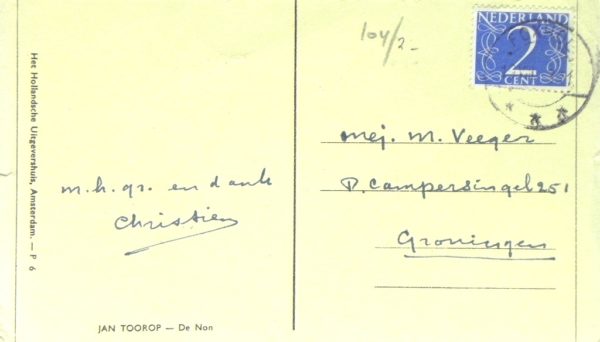 104/2-
NEDERLAND
2
CENT
Het Hollandsche Uitgevershuis, Amsterdam. — P 6
m.h.gr. en dank
Christien
mej. M. Veeger
P. Campersingel 251
Groningen
JAN TOOROP — De Non